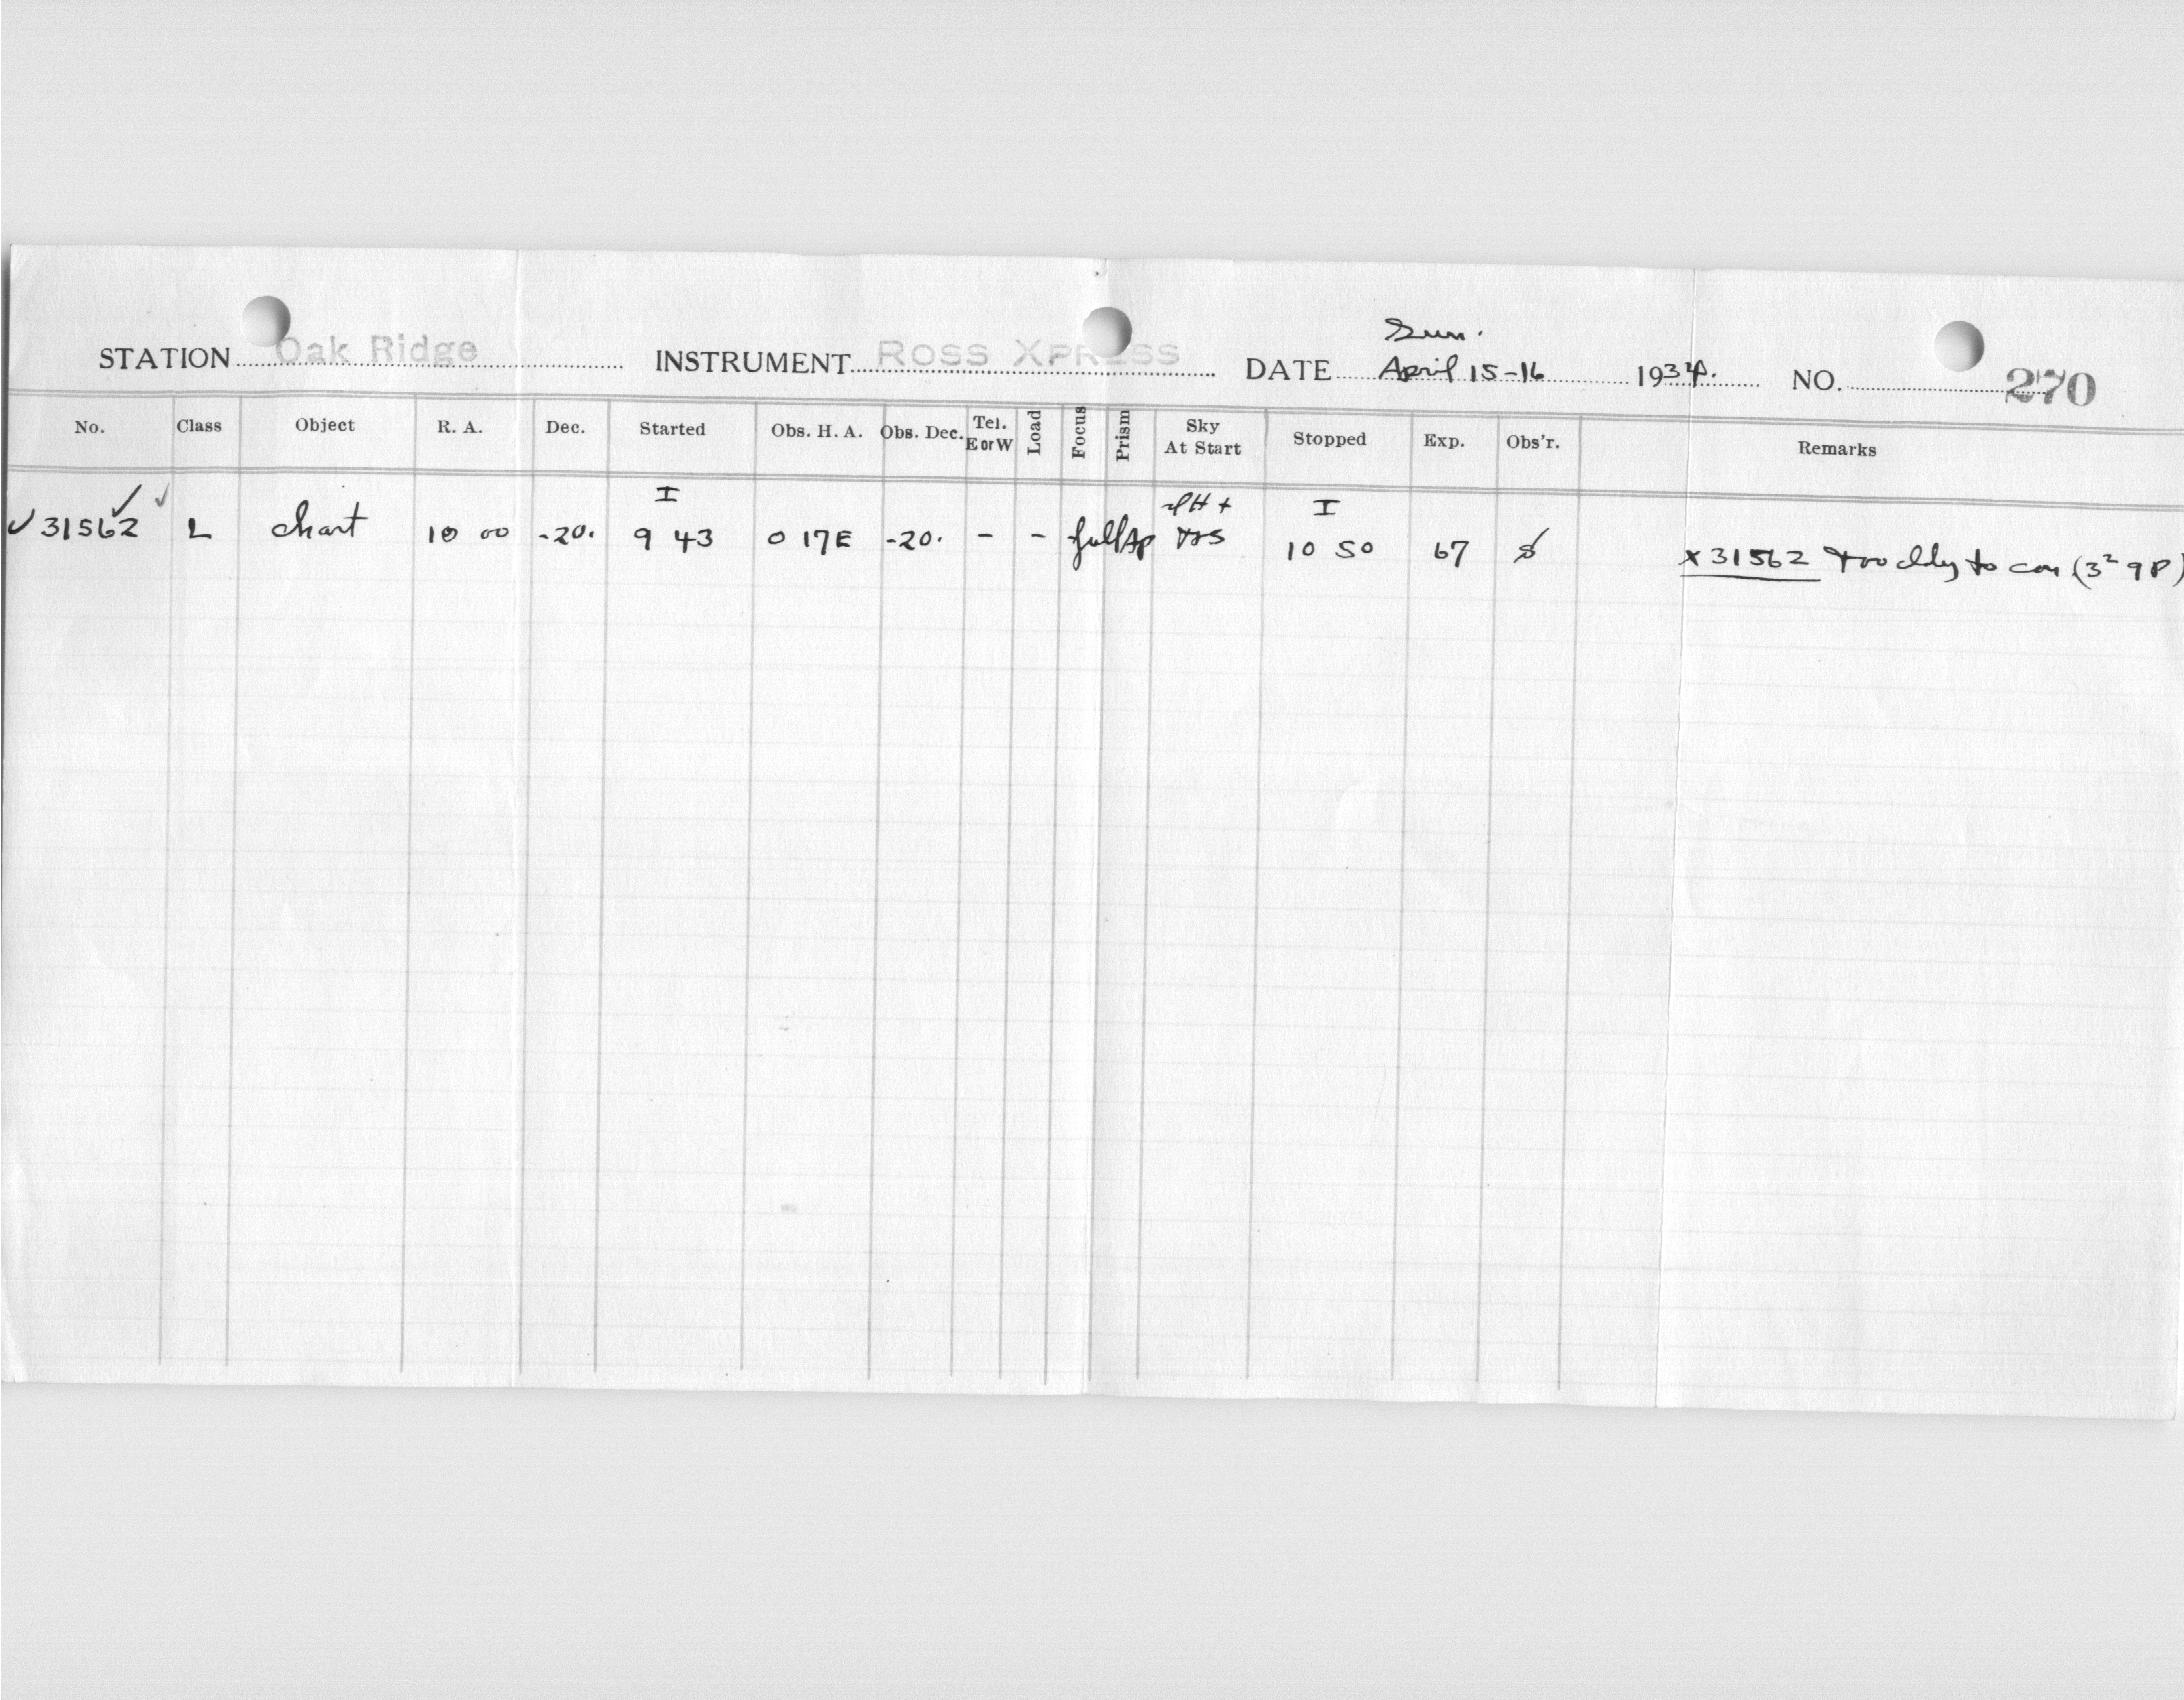 Sun.
STATION Oak Ridge INSTRUMENT ROSS XPRESS DATE April 15-16 1934. NO. 270
No. Class Object R. A. Dec. Started Obs. H. A. Obs. Dec. Tel. E or W Load Focus Prism Sky At Start Stopped Exp. Obs'r. Remarks
I I
✓31562 ✓ ✓ L chart 10 00 -20. 9 43 0 17E -20. - - full Ap 10 50 67 x31562 too cldy to con (3² 9P)